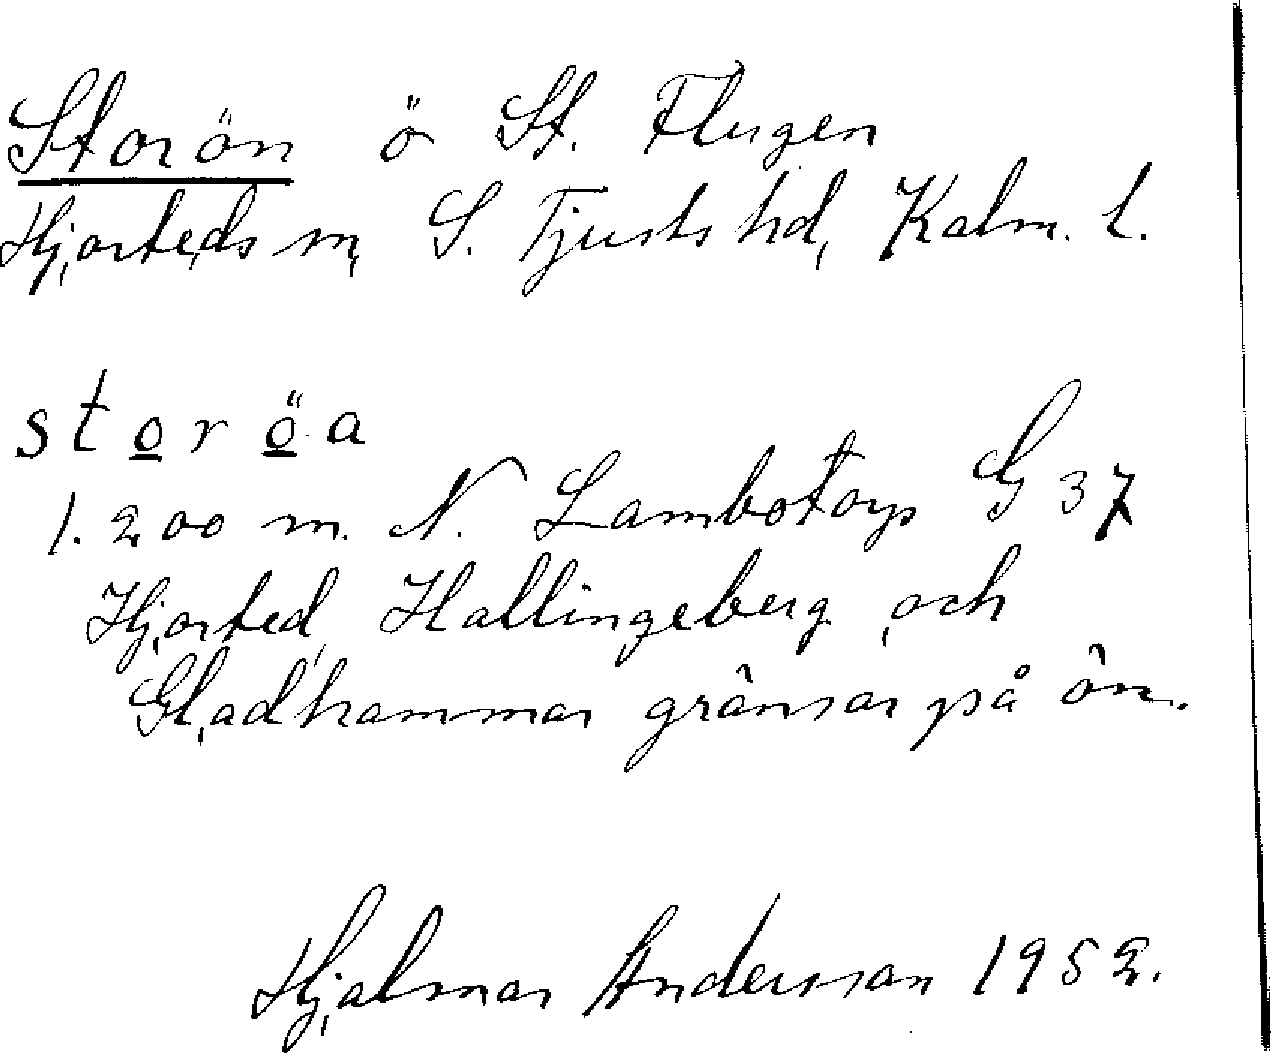 Storön ö St. Flugen
Hjorteds sn, S. Tjusts hd, Kalm. l.
storöa
1. 200 m. N. Lambotorp G 37
Hjorted, Hallingeberg och
Gladhammar gränsar på ön.
Hjalmar Andersson 1952.